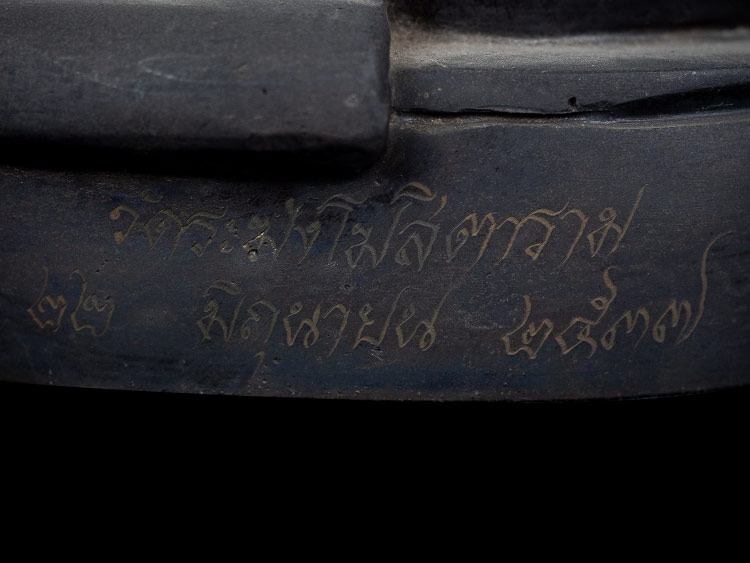 วัดระฆังโฆสิตาราม
๒๒ มิถุนายน ๒๕๓๗